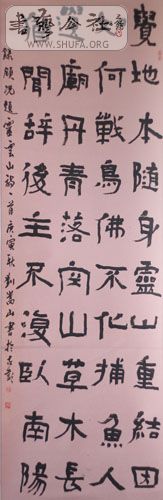 書法公社
WWW.SHUFA.ORG
覺地本隨身靈山重結因
何戰鳥佛不化捕魚人
遺廟丹青落空山草木長
聞辭後主不復臥南陽
錄顧況題靈雲山詩一首庚寅秋劉嵩山書於古彭